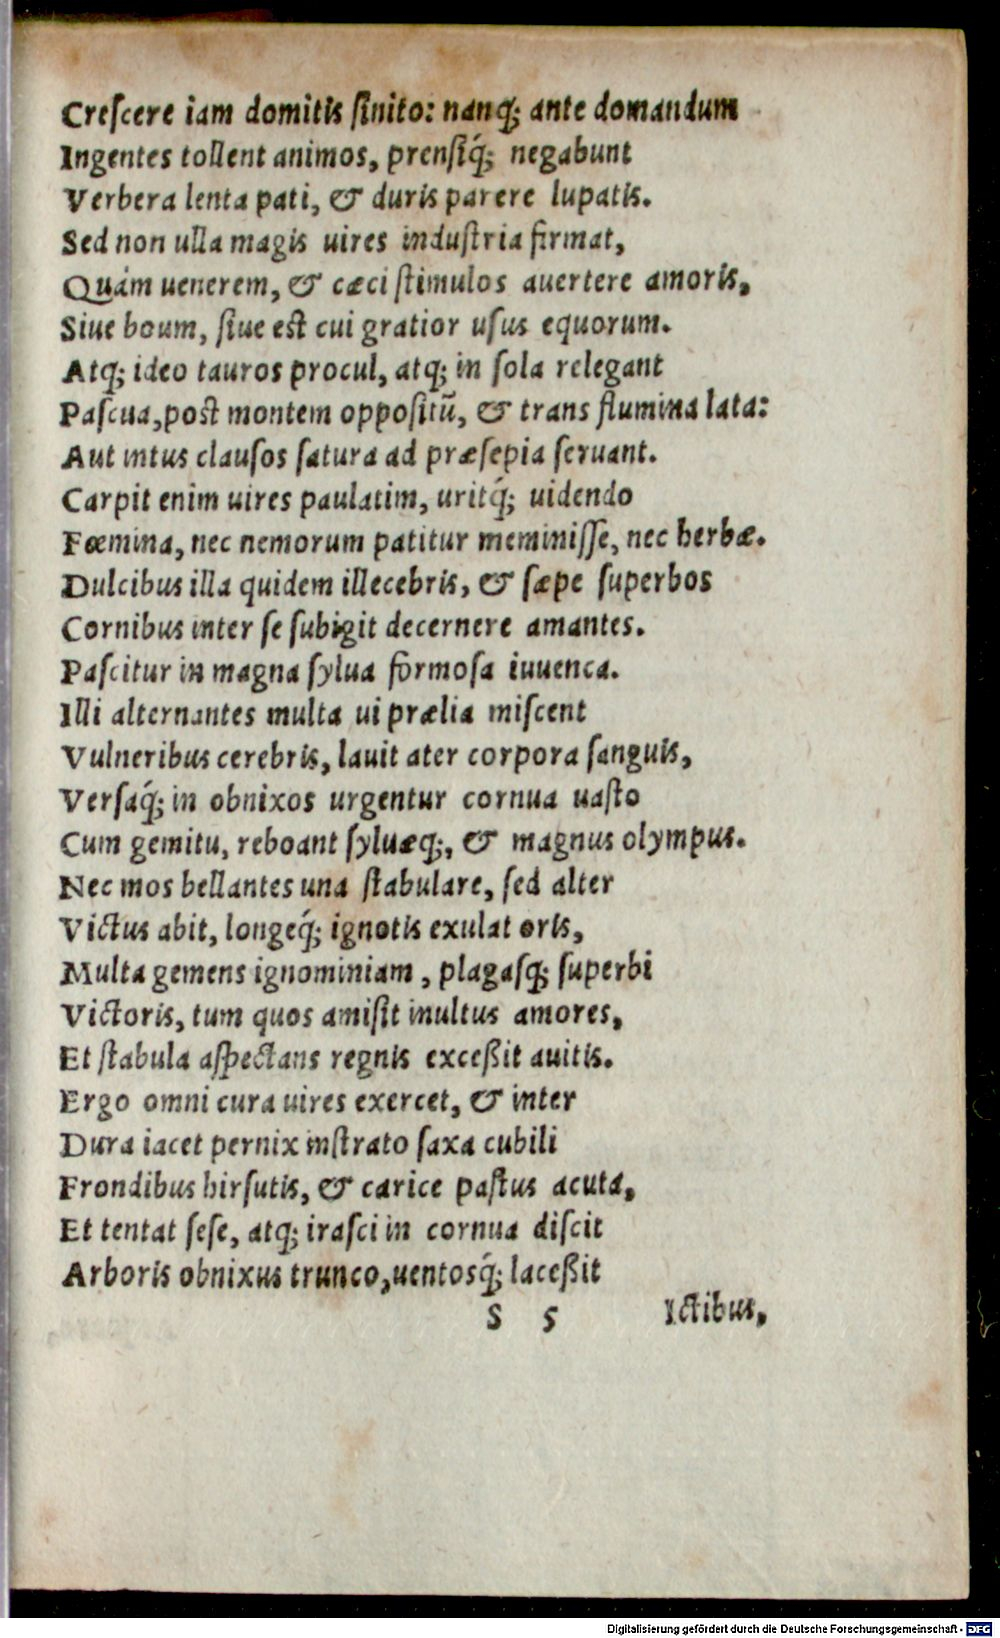 Creſcere iam domitis ſinito: nanq́; ante domandum
Ingentes tollent animos, prenſiq́; negabunt
Verbera lenta pati, & duris parere lupatis.
Sed non ulla magis uires induſtria firmat,
Quám uenerem, & cæci ſtimulos auertere amoris,
Siue boum, ſiue eſt cui gratior uſus equorum.
Atq; ideo tauros procul, atq; in ſola relegant
Paſcua, poſt montem oppoſitū, & trans flumina lata:
Aut intus clauſos ſatura ad præſepia ſeruant.
Carpit enim uires paulatim, uritq́; uidendo
Fœmina, nec nemorum patitur meminiſſe, nec herbæ.
Dulcibus illa quidem illecebris, & ſæpe ſuperbos
Cornibus inter ſe ſubigit decernere amantes.
Paſcitur in magna ſylua formoſa iuuenca.
Illi alternantes multa ui prælia miſcent
Vulneribus cerebris, lauit ater corpora ſanguis,
Verſaq́; in obnixos urgentur cornua uaſto
Cum gemitu, reboant ſyluæq;, & magnus olympus.
Nec mos bellantes una ſtabulare, ſed alter
Victus abit, longeq́; ignotis exulat oris,
Multa gemens ignominiam, plagaſq; ſuperbi
Victoris, tum quos amiſit inultus amores,
Et ſtabula aſpectans regnis exceßit auitis.
Ergo omni cura uires exercet, & inter
Dura iacet pernix inſtrato ſaxa cubili
Frondibus hirſutis, & carice paſtus acuta,
Et tentat ſeſe, atq; iraſci in cornua diſcit
Arboris obnixus trunco, uentosq́; laceßit
S 5 Ictibus,
Digitalisierung gefördert durch die Deutsche Forschungsgemeinschaft - DFG